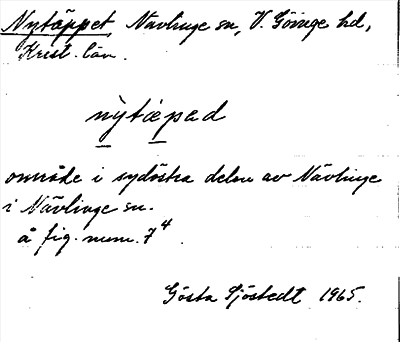 Nytäppet Nävlinge sn, V. Göinge hd,
Krist. län.
nỳtæpad
område i sydöstra delen av Nävlinge
i Nävlinge sn.
å fig. num. 7⁴.
Gösta Sjöstedt 1965.